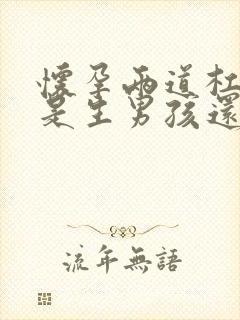 懷孕兩道杠
是生男孩還
流年無語